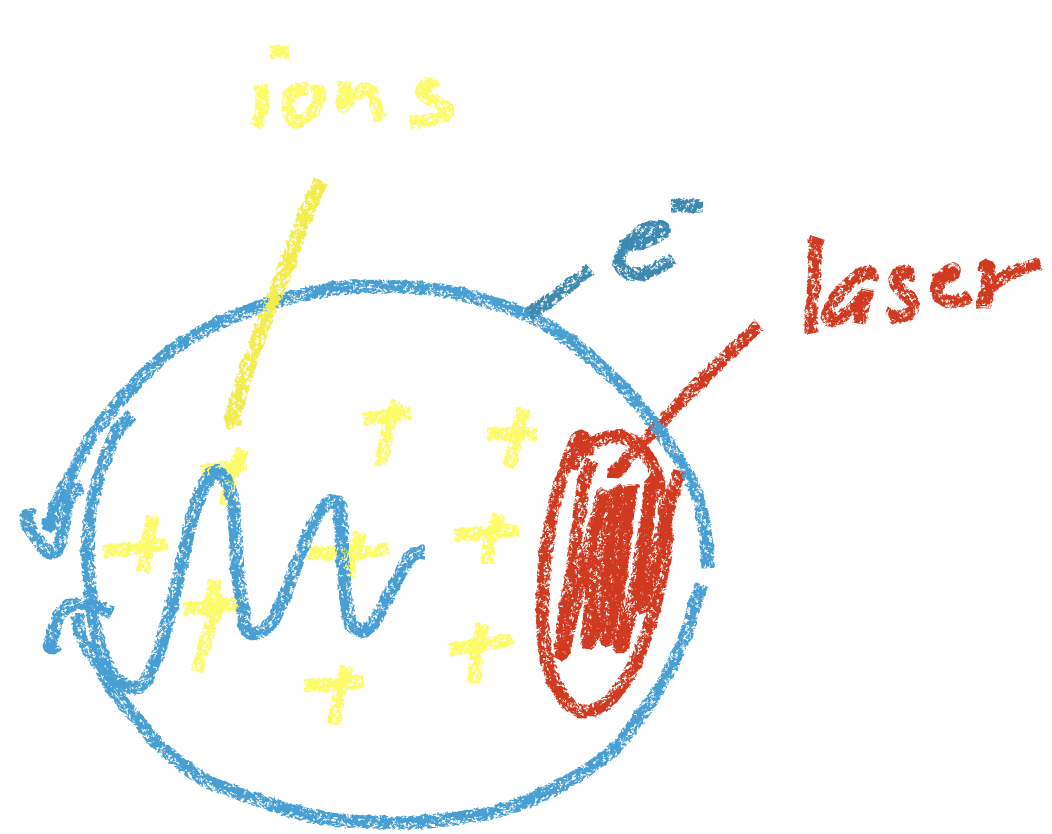 ions
e⁻
laser